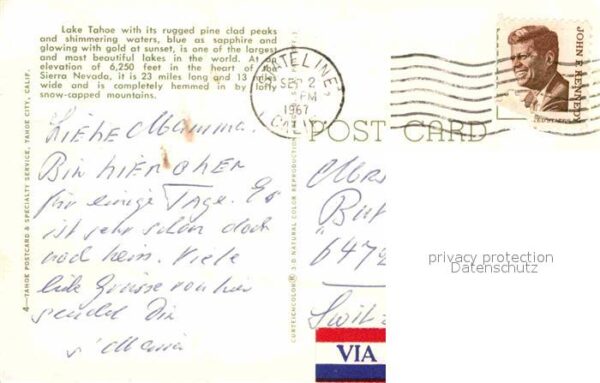 Lake Tahoe with its rugged pine clad peaks
and shimmering waters, blue as sapphire and
glowing with gold at sunset, is one of the largest
and most beautiful lakes in the world. At an
elevation of 6,250 feet in the heart of the
Sierra Nevada, it is 23 miles long and 13 miles
wide and is completely hemmed in by lofty
snow-capped mountains.
STATELINE
SEP 2
PM
1967
CALIF.
JOHN F. KENNEDY
POST CARD
Liebe Mamma.
Bin hier oben
für einige Tage. Es
ist sehr schön doch
heiss. Viele
liebe Grüsse von hier
sendet Dir
s'Maria
Mrs
But
647
Switz
VIA
4—TAHOE POSTCARD & SPECIALTY SERVICE, TAHOE CITY, CALIF.
CURTEICHCOLOR® 3-D NATURAL COLOR REPRODUCTION
privacy protection
Datenschutz